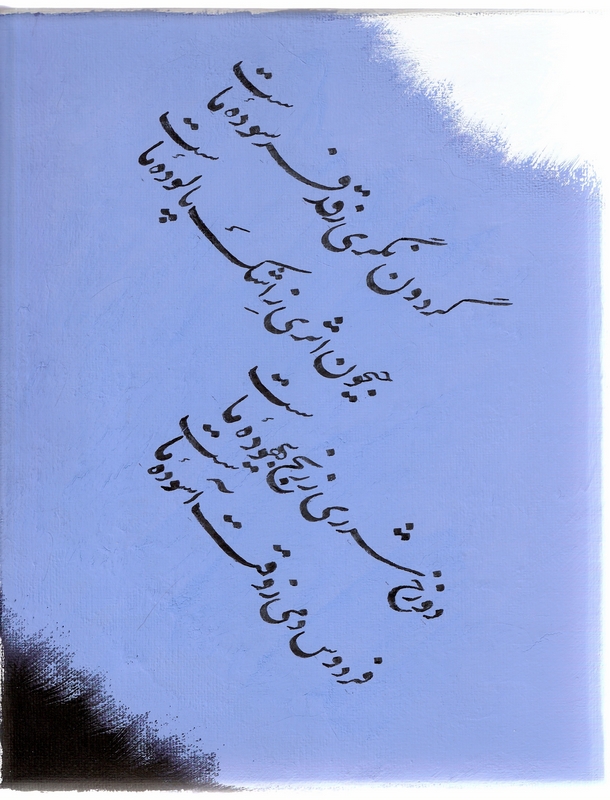 گردون نگری ز قد فرسودهٔ ماست
جیحون اثری ز اشک پالودهٔ ماست
دوزخ شرری ز رنج بیهودهٔ ماست
فردوس دمی ز وقت آسودهٔ ماست